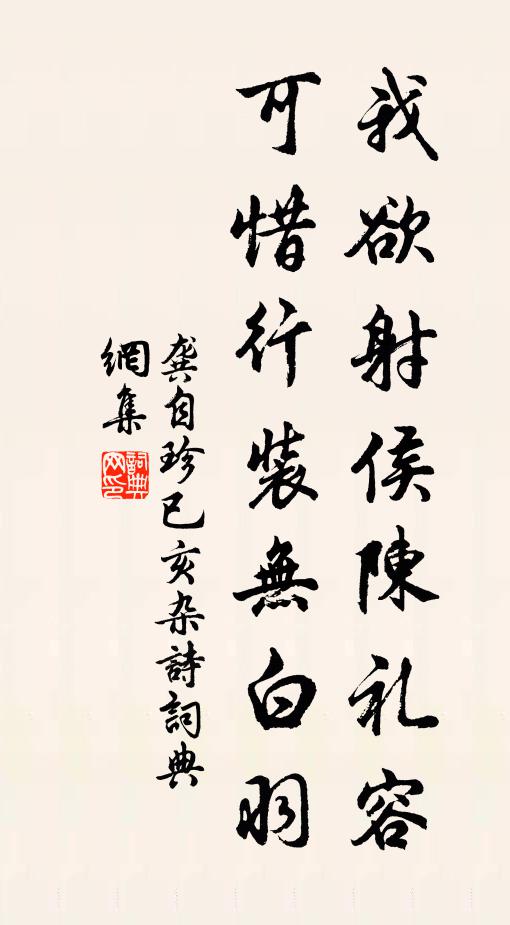 我欲射侯陳礼容
可惜行裝無白羽
龔自珍己亥杂詩詞典
網集
詞典
网印